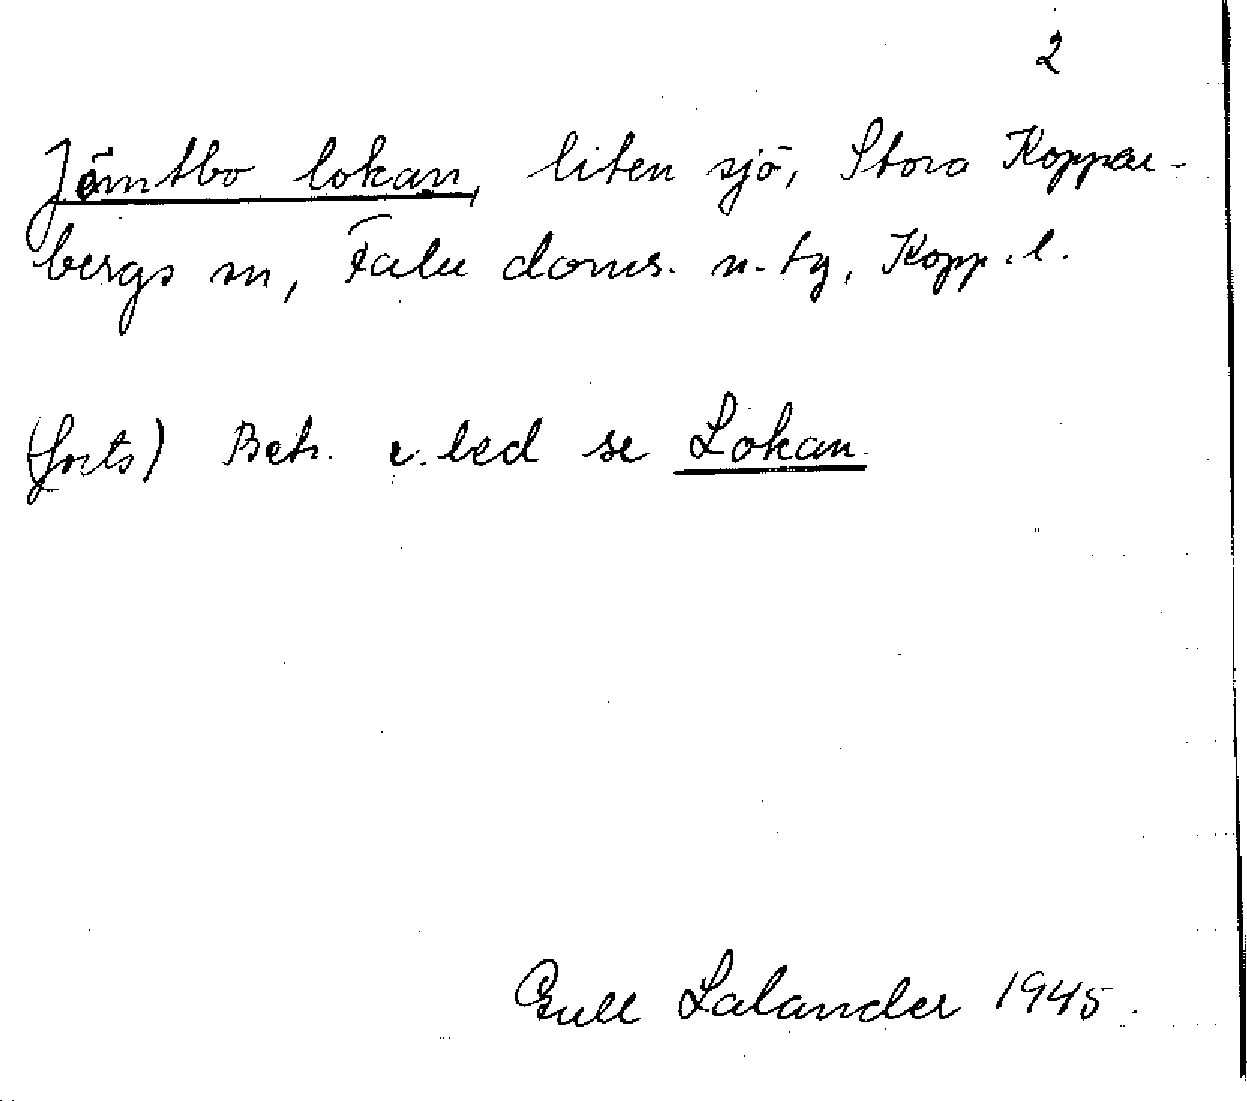 2
Jämtbo lokan, liten sjö, Stora Koppar-
bergs sn, Falu doms. n. tg, Kopp. l.
(forts) Betr. s. led se Lokan
Gull Lalander 1945.